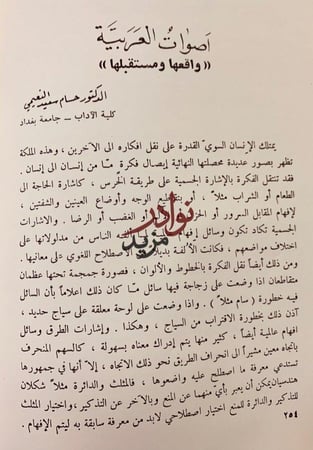 اصوات العربية
« واقعها ومستقبلها »
الدكتور حسام سعيد النعيمي
كلية الآداب – جامعة بغداد
يمتلك الإنسان السوي القدرة على نقل افكاره الى الآخرين ، وهذه الملكة
تظهر بصور عديدة محصلتها النهائية إيصال فكرة ما من إنسان الى انسان .
فقد تنتقل الفكرة بالإشارة الجسمية على طريقة الخرس ، كاشارة الحاجة الى
الطعام أو الشراب مثلاً ، أو بتقطيع الوجه وأوضاع العينين والشفتين ،
لإفهام المقابل السرور أو الغضب أو الرضا . والاشارات
الجسمية تكاد تكون وسائل إفهام الناس من مدلولاتها على
اختلاف مواضعهم ، فكانت الاصطلاح اللغوي على معانيها .
ومن ذلك أيضاً نقل الفكرة بالخطوط والألوان ، فصورة جمجمة تحتها عظمان
متقاطعان اذا وضعت على زجاجة فيها سائل ما كان ذلك اعلاماً بأن السائل
فيه خطورة ( سام مثلاً ) . واذا وضعت على لوحة معلقة على سياج حديد ،
آذن ذلك بخطورة الاقتراب من السياج ، وهكذا . وإشارات الطرق وسائل
افهام عالمية أيضاً ، كثير منها يتم إدراك معناه بسهولة ، كالسهم المنحرف
باتجاه معين مشيراً الى انحراف الطريق نحو ذلك الاتجاه ، إلا أنها في جمهورها
تستدعي معرفة ما اصطلح عليه واضعوها ، فالمثلث والدائرة مثلاً شكلان
هندسيان يمكن أن يعبر بأي منهما عن المنع وبالآخر عن التذكير ، واختيار المثلث
للتذكير والدائرة للمنع اختيار اصطلاحي لابد من معرفة سابقة به ليتم الإفهام .
٢٥٤
نوادر
مزيد